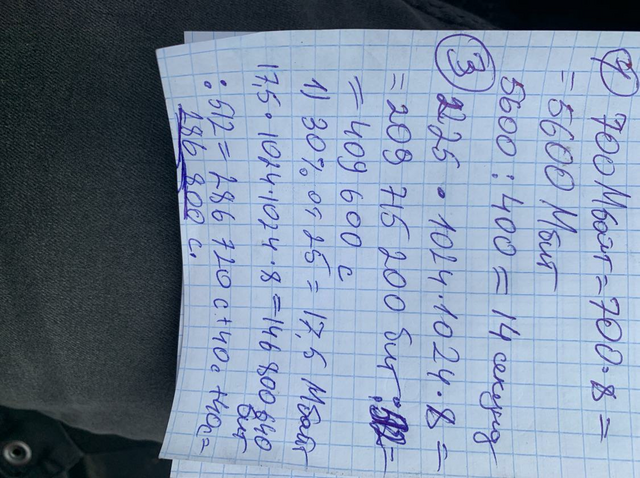 ④ 700 Мбайт = 700·8 =
= 5600 Мбит
5600 : 400 = 14 секунд
③ 25 · 1024·1024·8 =
= 209 715 200 бит : 512 =
= 409 600 с
1) 30% от 25 = 17,5 Мбайт
17,5·1024·1024·8 = 146 800 640
бит
: 512 = 286 720 с + 40с + 40с =
286 800 с.